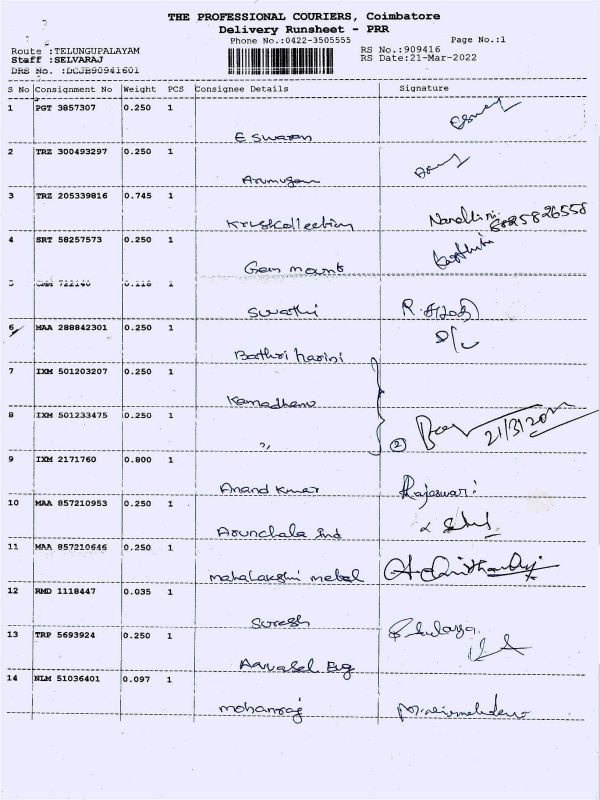 THE PROFESSIONAL COURIERS, Coimbatore
Delivery Runsheet - PRR
Phone No.:0422-3505555
Page No.:1
Route :TELUNGUPALAYAM
RS No.:909416
Staff :SELVARAJ
RS Date:21-Mar-2022
DRS No. :DCJB90941601
S No Consignment No Weight PCS Consignee Details Signature
1 PGT 3857307 0.250 1
Eswaran
2 TRZ 300493297 0.250 1
Arumugam
3 TRZ 205339816 0.745 1
Kruskollection Nandhini
4 SRT 58257573 0.250 1
Gem mount
5
Swathi
6 MAA 288842301 0.250 1
Bathri harini
7 IXM 501203207 0.250 1
Kamadhenu
8 IXM 501233475 0.250 1
,, 2 21/3/2022
9 IXM 2171760 0.800 1
Anand Kumar Rajeswari
10 MAA 857210953 0.250 1
Arunchala Ind
11 MAA 857210646 0.250 1
mahalakshmi metal
12 RMD 1118447 0.035 1
Suresh
13 TRP 5693924 0.250 1
14 NLM 51036401 0.097 1
mohanraj